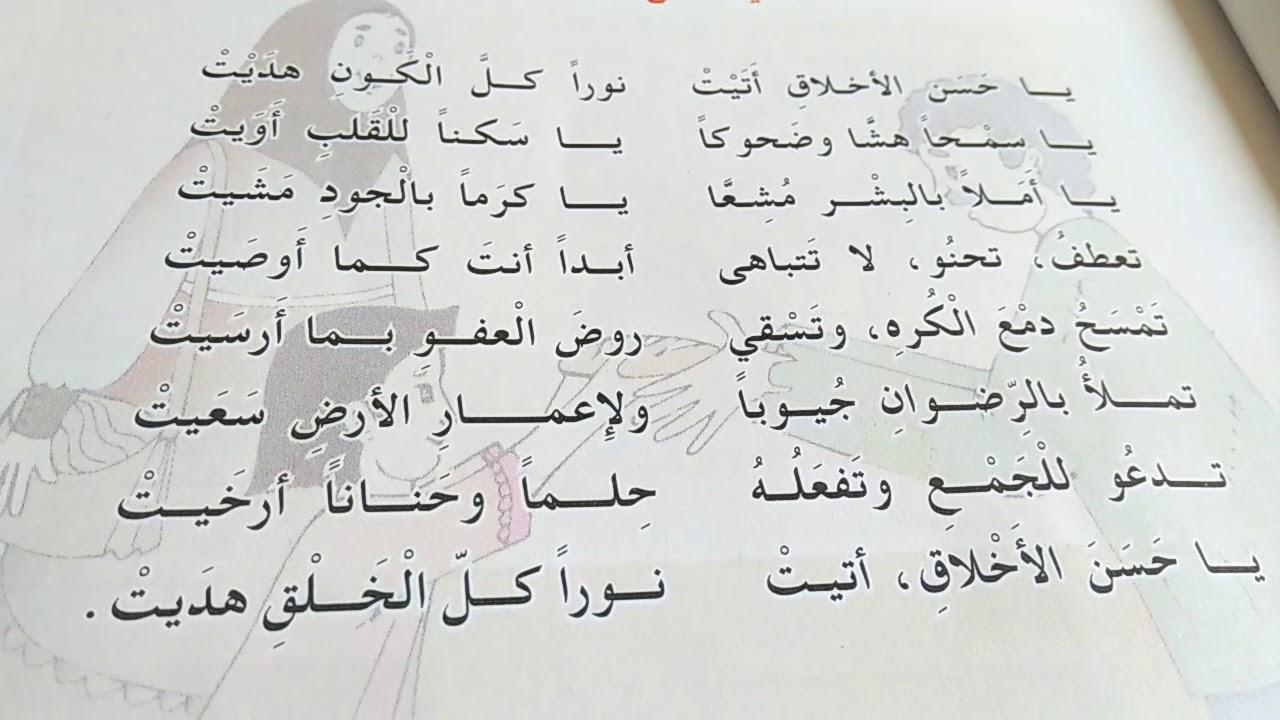 يا حَسَن الأخلاقِ أَتَيْتْ نوراً كلَّ الْكَونِ هدَيْتْ
يا سمْحاً هشَّا وضَحوكاً يا سَكناً للْقَلبِ أَوَيتْ
يا أَمَلاً بالبِشْر مُشِعَّا يا كرَماً بالْجودِ مَشَيتْ
تعطفُ، تحنُو، لا تَتباهى أبداً أنتَ كما أَوصَيتْ
تَمْسَحُ دمْعَ الْكُرهِ، وتَسْقي روضَ الْعفوِ بما أَرسَيتْ
تملأُ بالرِّضوانِ جُيوباً ولإِعمارِ الأرضِ سَعَيتْ
تدعُو للْجَمْعِ وتَفعَلُهُ حِلماً وحَناناً أرخَيتْ
يا حَسَنَ الأَخْلاقِ، أتيتْ نوراً كلّ الْخَلْقِ هدَيتْ.